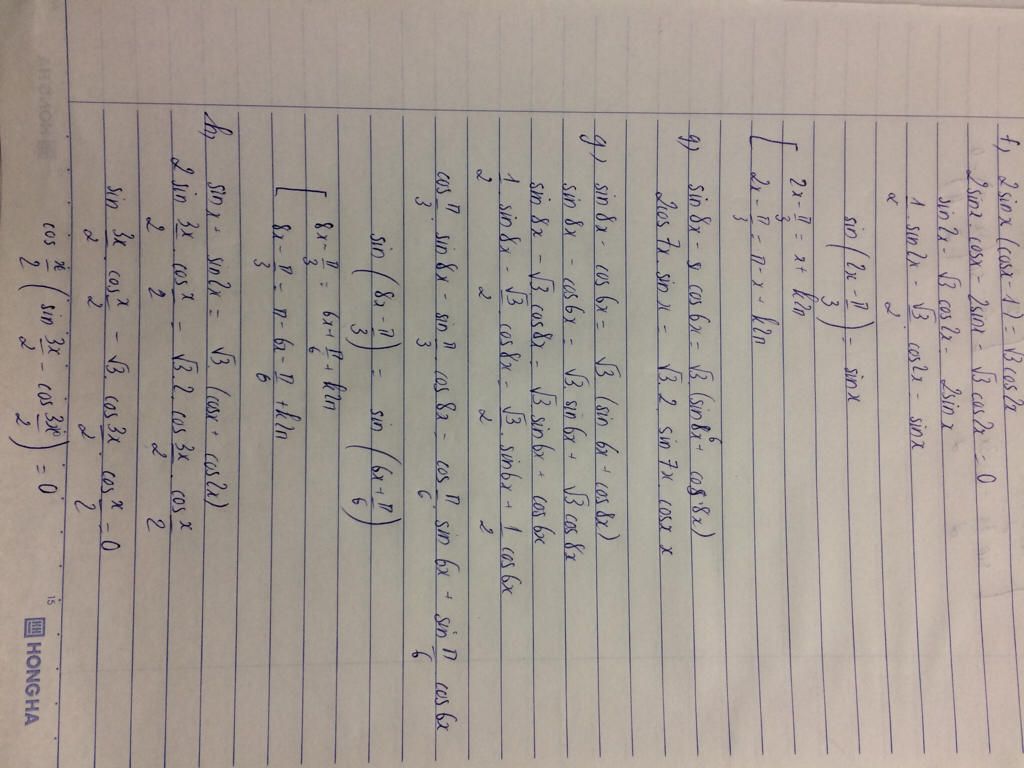 f, 2sinx (cosx - 1) = √3 cos2x
2sinx.cosx - 2sinx - √3 cos2x = 0
sin2x - √3 cos2x = 2sinx
1/2 sin2x - √3/2 cos2x = sinx
sin(2x - π/3) = sinx
[ 2x - π/3 = x + k2π
2x - π/3 = π - x + k2π
g) sin8x - cos6x = √3 (sin6x + cos8x)
2cos7x sinx = √3 2 sin7x cosx
g) sin8x - cos6x = √3 (sin6x + cos8x)
sin8x - cos6x = √3 sin6x + √3 cos8x
sin8x - √3 cos8x = √3 sin6x + cos6x
1/2 sin8x - √3/2 cos8x = √3/2 sin6x + 1/2 cos6x
cos π/3 sin8x - sin π/3 cos8x = cos π/6 sin6x + sin π/6 cos6x
sin (8x - π/3) = sin (6x + π/6)
[ 8x - π/3 = 6x + π/6 + k2π
8x - π/3 = π - 6x - π/6 + k2π
h, sinx + sin2x = √3 (cosx + cos2x)
2 sin 3x/2 cos x/2 = √3.2 cos 3x/2 cos x/2
sin 3x/2 cos x/2 - √3 cos 3x/2 cos x/2 = 0
cos x/2 ( sin 3x/2 - cos 3x/2 ) = 0
15
HONGHA